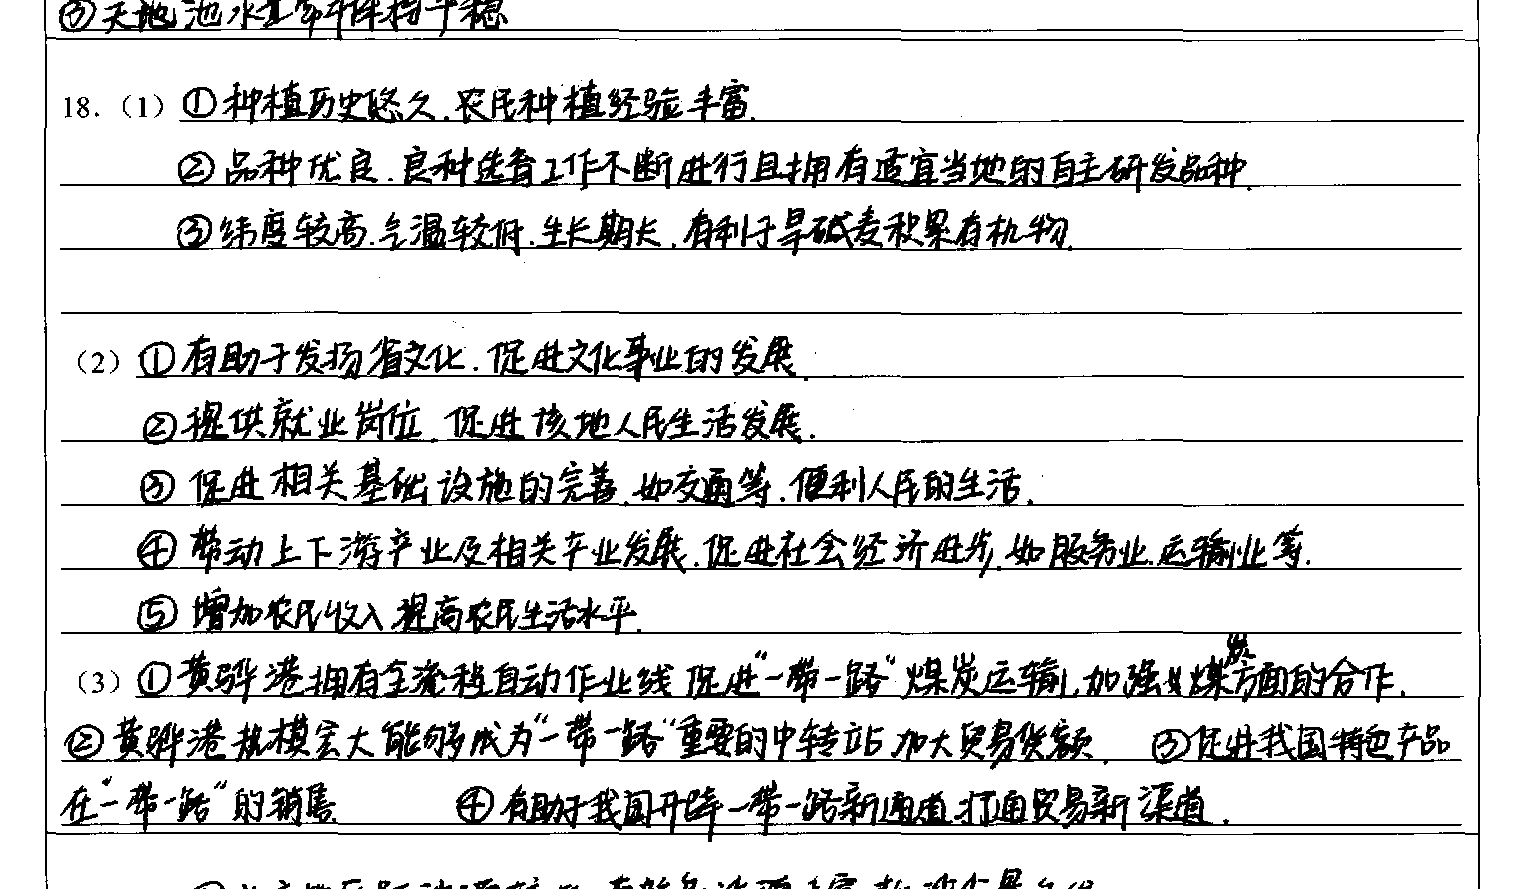 ③天地池水量条件保持平稳
18.（1）①种植历史悠久,农民种植经验丰富.
②品种优良.良种选育工作不断进行且拥有适宜当地的自主研发品种.
③纬度较高.气温较低.生长期长,有利于旱碱麦积累有机物.
（2）①有助于发扬省文化.促进文化事业的发展.
②提供就业岗位,促进该地人民生活发展.
③促进相关基础设施的完善,如交通等,便利人民的生活.
④带动上下游产业及相关产业发展,促进社会经济进步,如服务业.运输业等.
⑤增加农民收入,提高农民生活水平.
（3）①黄骅港拥有全流程自动作业线,促进“一带一路”煤炭运输,加强煤炭方面的合作.
②黄骅港规模宏大能够成为“一带一路”重要的中转站,加大贸易货额. ③促进我国特色产品
在“一带一路”的销售 ④有助于我国开辟一带一路新通道,打通贸易新渠道.